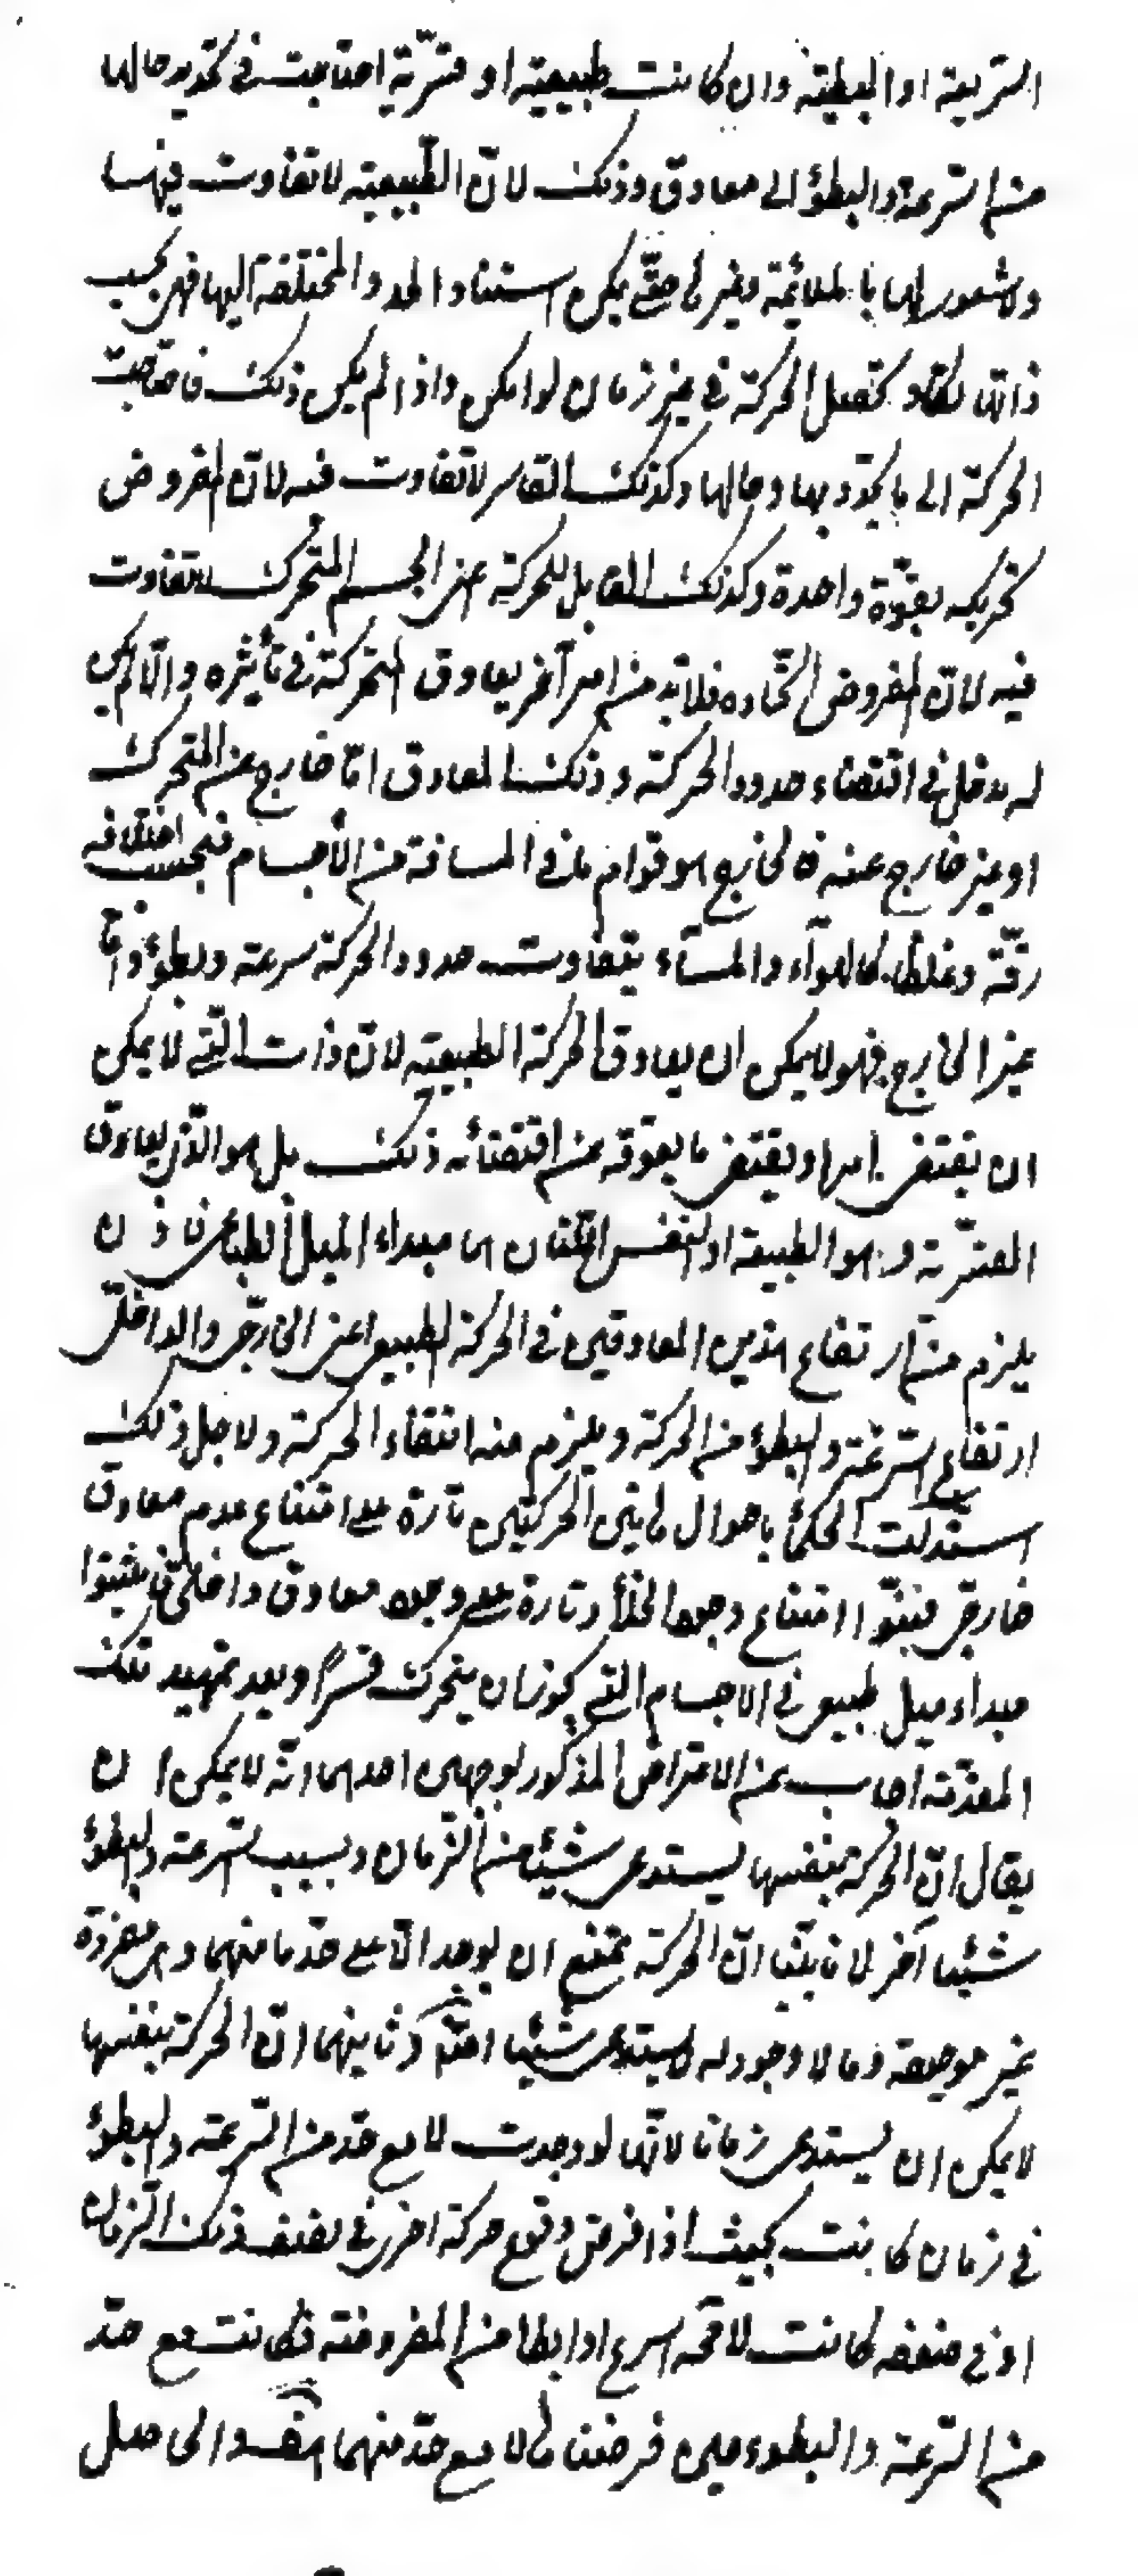 السريعة او البطيئة وان كانت طبيعية او قسرية احتاجت في تحديد حالها
من السرعة والبطؤ الى معاوق وذلك لان الطبيعية لا تفاوت فيها
ولا شعور لها بالملائمة وغيرها حتى يمكن استناد الحدود المختلفة اليها فهي بحسب
ذاتها تكاد تحصل الحركة في غير زمان لو امكن واذا لم يكن ذلك فاحتاجت
الحركة الى ما يحدد بها وحالها وكذلك القاسر لا تفاوت فيه لان المفروض
تحريكه بقوة واحدة وكذلك القابل للحركة اعني الجسم المتحرك لا تفاوت
فيه لان المفروض اتحاده فلابد من امر آخر يعاوق المحركة في تأثيره والا لم يكن
له مدخل في اقتضاء حدود الحركة وذلك المعاوق اما خارج عن المتحرك
او غير خارج عنه فالخارج هو قوام ما في المسافة من الأجسام فبحسب اختلافه
رقة وغلظا كالهوآء والمآء يتفاوت حدود الحركة سرعة وبطؤ واما
غير الخارج فهو لا يمكن ان يعاوق الحركة الطبيعية لان ذات الشئ لا يمكن
ان يقتضي امرا ويقتضي ما يعوقه عن اقتضائه ذلك بل هو الذي يعاوق
القسرية وهو الطبيعة او النفس اللتان هما مبداء الميل الطباعي فاذن
يلزم من ارتفاع هذين المعاوقين في الحركة الطبيعي اعني الخارجي والداخلي
ارتفاع السرعة والبطؤ من الحركة ويلزم منه انتفاء الحركة ولاجل ذلك
استدلت الحكمأ باحوال هاتين الحركتين تارة على امتناع عدم معاوق
خارجي فبينوا امتناع وجود الخلأ وتارة على وجود معاوق داخلي فاثبتوا
مبداء ميل طبيعي في الاجسام التي يجوز ان يتحرك قسراً وبعد تمهيد تلك
المقدمة اجاب عن الاعتراض المذكور بوجهين احدهما انه لا يمكن ان
يقال ان الحركة بنفسها يستدعي شيئا من الزمان وبسبب السرعة والبطؤ
شيئا آخر لانا بينا ان الحركة يمتنع ان يوجد الا على حد ما منهما وهي مفردة
غير موجودة وما لا وجود له لا يستدعي شيئا اصلا وثانيهما ان الحركة بنفسها
لا يمكن ان يستدعي زمانا لانها لو وجدت لا مع حد من السرعة والبطؤ
في زمان كانت بحيث اذا فرض وقوع حركة اخرى في نصف ذلك الزمان
او في ضعفه كانت لا محه اسرع او ابطا من المفروضة فكانت مع حد
من السرعة والبطوء حين فرضناها لا مع حد منهما هف والحاصل